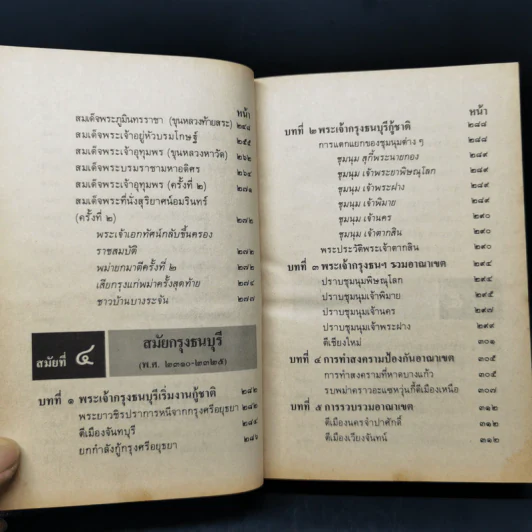 หน้า
สมเด็จพระภูมินทรราชา (ขุนหลวงท้ายสระ) ๒๔๘
สมเด็จพระเจ้าอยู่หัวบรมโกษฐ์ ๒๕๕
สมเด็จพระเจ้าอุทุมพร (ขุนหลวงหาวัด) ๒๖๒
สมเด็จพระบรมราชามหาอดิศร ๒๖๔
สมเด็จพระเจ้าอุทุมพร (ครั้งที่ ๒) ๒๗๑
สมเด็จพระที่นั่งสุริยาศน์อมรินทร์
(ครั้งที่ ๒) ๒๗๒
พระเจ้าเอกทัศน์กลับขึ้นครอง
ราชสมบัติ ๒๗๒
พม่ายกมาตีครั้งที่ ๒ ๒๗๒
เสียกรุงแก่พม่าครั้งสุดท้าย ๒๗๔
ชาวบ้านบางระจัน ๒๗๗
สมัยที่ ๔ สมัยกรุงธนบุรี
(พ.ศ. ๒๓๑๐-๒๓๒๕)
บทที่ ๑ พระเจ้ากรุงธนบุรีเริ่มงานกู้ชาติ ๒๘๒
พระยาวชิรปราการหนีจากกรุงศรีอยุธยา ๒๘๒
ตีเมืองจันทบุรี ๒๘๔
ยกกำลังกู้กรุงศรีอยุธยา ๒๘๖
หน้า
บทที่ ๒ พระเจ้ากรุงธนบุรีกู้ชาติ ๒๘๘
การแตกแยกของชุมนุมต่าง ๆ ๒๘๘
ชุมนุม สุกี้พระนายกอง ๒๘๙
ชุมนุม เจ้าพระยาพิษณุโลก ๒๘๙
ชุมนุม เจ้าพระฝาง ๒๘๙
ชุมนุม เจ้าพิมาย ๒๘๙
ชุมนุม เจ้านคร ๒๙๐
ชุมนุม เจ้าตากสิน ๒๙๐
พระประวัติพระเจ้าตากสิน ๒๙๐
บทที่ ๓ พระเจ้ากรุงธนฯ รวมอาณาเขต ๒๙๔
ปราบชุมนุมพิษณุโลก ๒๙๔
ปราบชุมนุมเจ้าพิมาย ๒๙๕
ปราบชุมนุมเจ้านคร ๒๙๗
ปราบชุมนุมเจ้าพระฝาง
ตีเชียงใหม่ ๓๐๑
บทที่ ๔ การทำสงครามป้องกันอาณาเขต ๓๐๕
การทำสงครามที่หาดบางแก้ว ๓๐๕
รบพม่าคราวอะแซหวุ่นกี้ตีเมืองเหนือ ๓๐๗
บทที่ ๕ การรวบรวมอาณาเขต ๓๑๒
ตีเมืองนครจำปาศักดิ์ ๓๑๒
ตีเมืองเวียงจันทน์ ๓๑๒